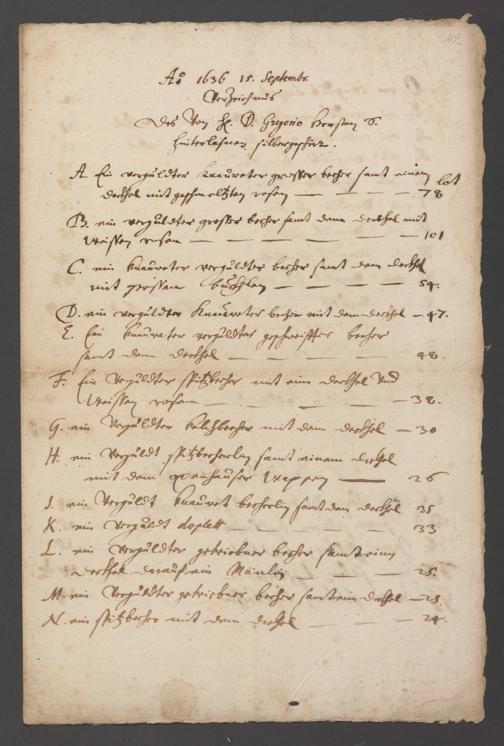 Aō 1636 15. Septembr.
Verzeichnus
Des Von H. D. Gregorio Horsten S.
hinterlaßnen silbergeschir.
A. Ein vergüldter knaureter grosser becher samt einem lot
deckel mit geschmeltzten rosen — 78
B. ein vergüldter grosser becher samt dem deckel mit
weissen rosen — 101
C. ein knaureter vergüldter becher samt dem deckel
mit grossen — 54.
D. ein vergüldter knaureter becher mit dem deckel — 47.
E. Ein knaureter vergüldter becher
samt dem deckel — 48.
F. Ein Vergüldter spitzbecher mit eim deckel Und
Weissen rosen — 38.
G. ein Vergüldter kelchbecher mit dem deckel — 30
H. ein Vergüldt spitzbecherlen samt einem deckel
mit dem Wappen — 26
I. ein Vergüldt knauret becherlin samt dem deckel 35
K. ein Vergüldt doplett — 33
L. ein Vergüldter getriebner becher samt eim
deckel darauf ein Mänlin — 25.
M. ein Vergüldter getriebner becher samt eim deckel — 23.
N. ein spitzbecher mit dem deckel — 24.